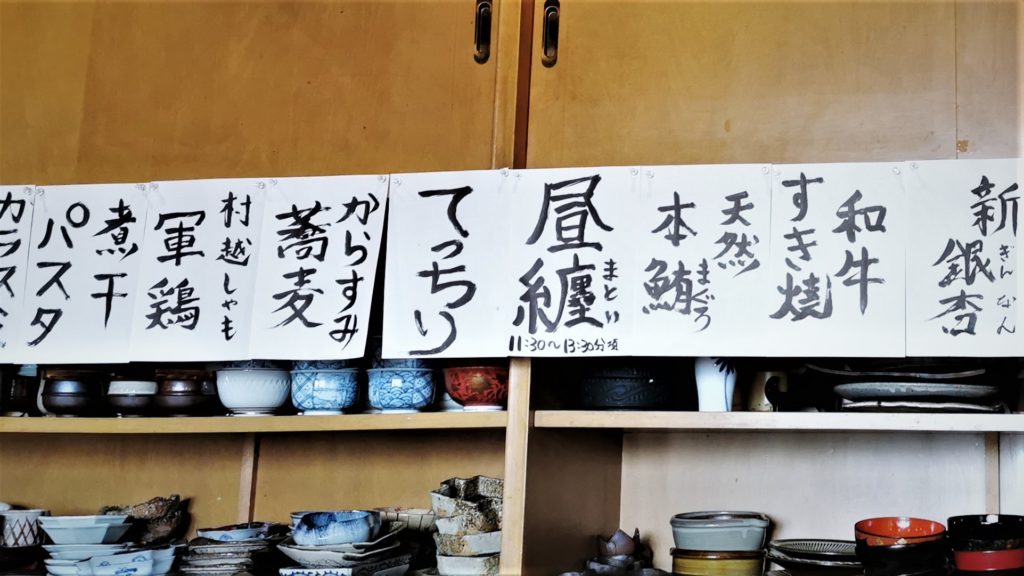 新
銀杏
ぎんなん
和牛
すき焼
天然
本鮪
まぐろ
昼纏
まとい
11:30〜13:30分頃
てっちり
からすみ
蕎麦
村越しゃも
軍鶏
煮干
パスタ
カラス